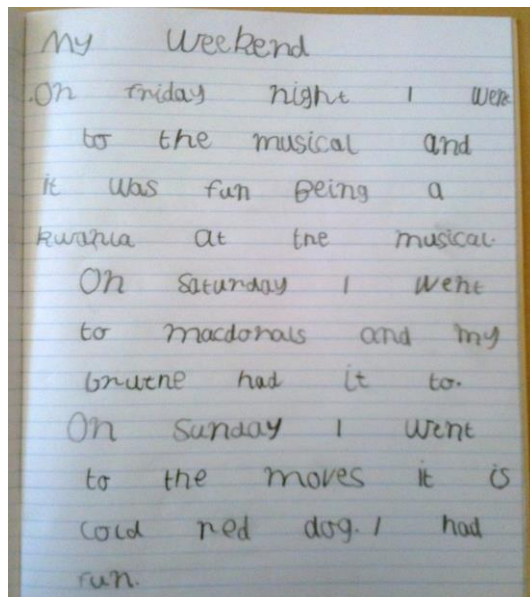 My Weekend
On friday night I went
to the musical and
it was fun being a
kwahla at the musical.
On Saturday I went
to macdonals and my
bruthe had it to.
On Sunday I went
to the moves it is
cold red dog. I had
run.